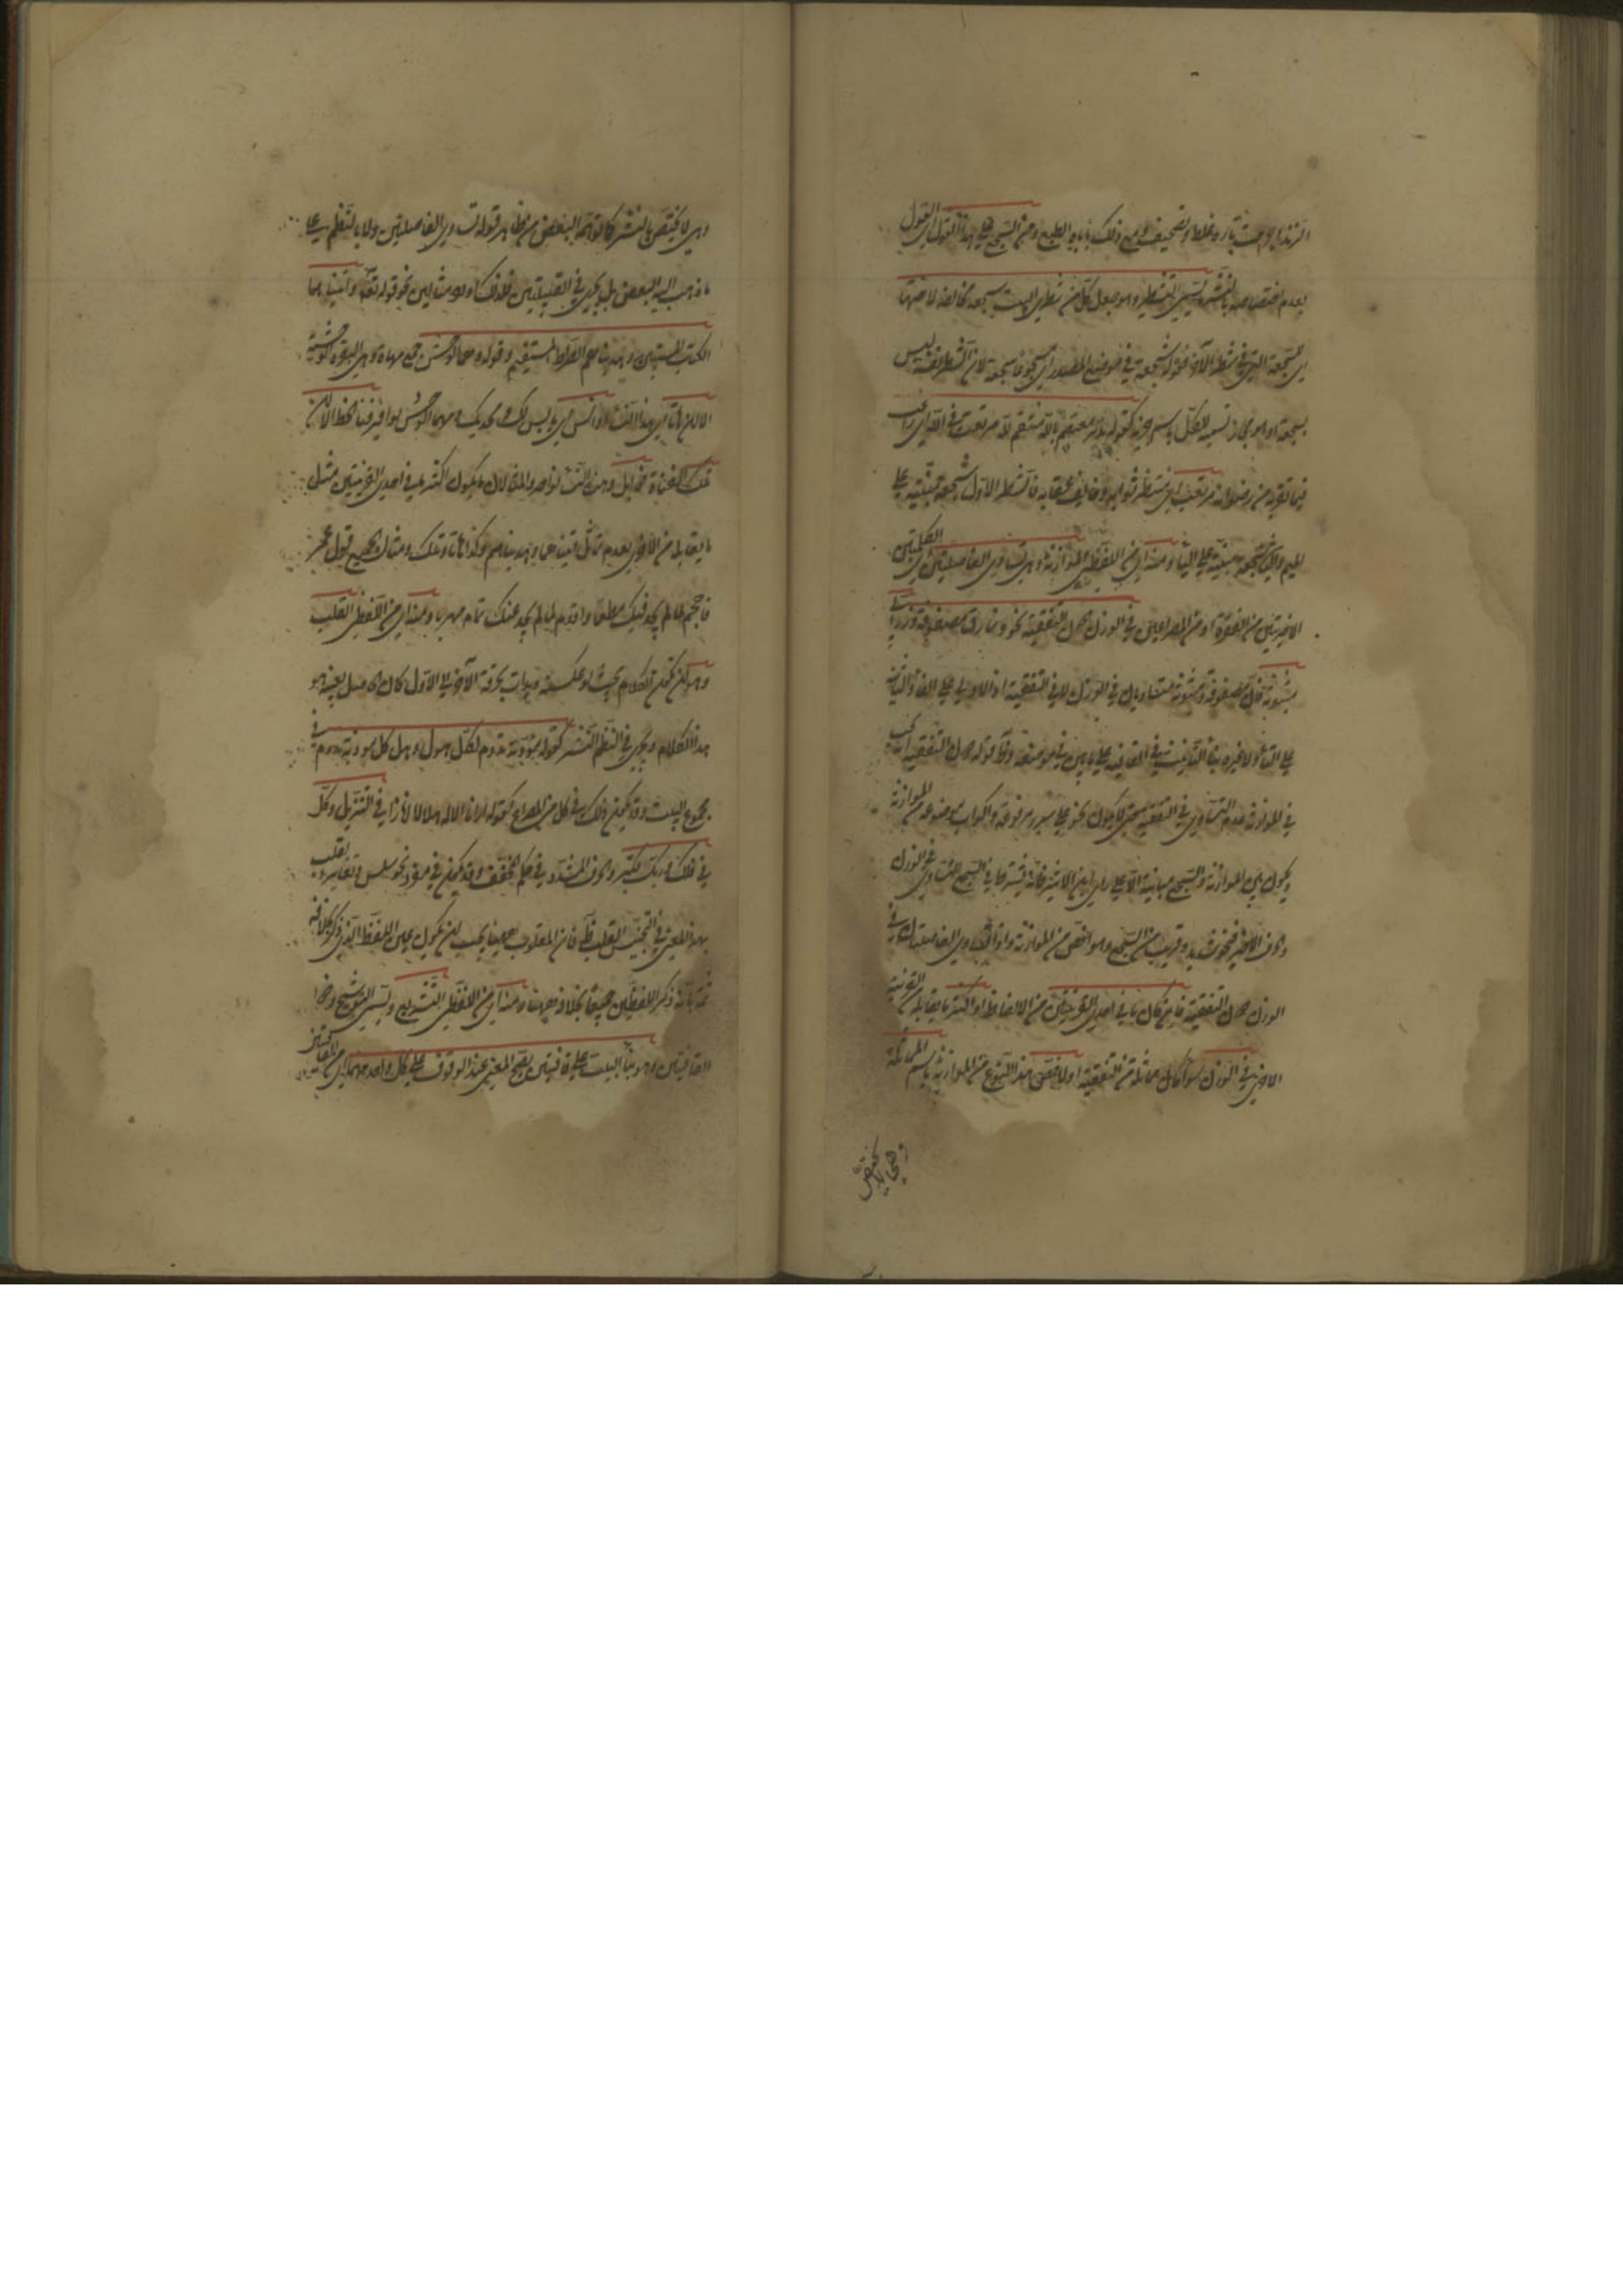 الزند اي صرت ثاره غلط و تصحيف و مع ذلك يأباه الطبع و من السجع على هذا القول اي القول
بعدم اختصاصه بالنثر ما يسمى التشطير و هو جعل كل من شطري البيت سجعة مخالفة لاختها
اي السجعة التي في الشطر الآخر فقوله سجعة في موضع المصدر اي مسجوعا سجعة لان الشطر نفسه ليس
بسجعة او هو مجاز تسمية للكل باسم جزئه كقوله تدبير معتصم بالله منتقم لله مرتغب في الله اي راغب
فيما يقربه من رضوانه مرتقب اي منتظر ثوابه و خائف عقابه فالشطر الاول سجعة مبنية على
الميم و الثاني سجعة مبنية على الباء و منه اي من اللفظي الموازنة و هي تساوي الفاصلتين اي الكلمتين
الاخيرتين من الفقرة او من المصراعين في الوزن دون التقفية نحو و نمارق مصفوفة و زرابي
مبثوثة فان مصفوفة و مبثوثة متساويان في الوزن لا في التقفية اذ الاولى على الفاء و الثانية
على الثاء و لا عبرة بتاء التأنيث في القافية على ما بين في موضعه و ظ قوله دون التقفية انه يجب
في الموازنة عدم التساوي في التقفية حتى لا يكون نحو فيها سرر مرفوعة و اكواب موضوعة من الموازنة
و يكون بين الموازنة و السجع مباينة الا على رأي ابن الاثير فانه يشترط في السجع التساوي في الوزن
و الحرف الاخير فنحو شديد و قريب من السجع و هو اخص من الموازنة و اذا تساوي الفاصلتان في
الوزن دون التقفية فان كان ما في احدى القرينتين من الالفاظ او اكثر ما يقابله من القرينة
الاخرى في الوزن سواء كان مماثلة في التقفية او لا خص هذا النوع من الموازنة باسم المماثلة
و هي لا يختص
و هي لا يختص بالنثر كما توهمه البعض من ظاهر قولهم تساوي الفاصلتين و لا بالنظم على
ما ذهب اليه البعض بل يجري في القبيلتين فلذلك اورد مثالين نحو قوله تعالى و آتيناهما
الكتاب المستبين و هديناهما الصراط المستقيم و قوله مها الوحش جمع مهاة و هي البقرة الوحشية
الا ان هاتا اي هذه النساء اوانس اي يؤنسك و يحدثك و مها الوحش نوافر قنا الخط الا ان
تلك القناة ذوابل و هذه النساء نواضر و المثالان مما يكون اكثر ما في احدى القرينتين مثل
ما يقابله من الاخرى لعدم تماثل آتيناهما و هديناهما و كذا هاتا و تلك و مثال الجميع قول ابي تمام
فاحجم لما لم يجد فيك مطمعا و اقدم لما لم يجد عنك مهربا و منه اي من اللفظي القلب
و هو ان يكون الكلام بحيث لو عكسته و بدأت بحرفه الآخر الى الاول كان الحاصل بعينه هو
هذا الكلام و يجري في النظم و النثر كقوله مودته تدوم لكل هول و هل كل مودته تدوم في
مجموع البيت و قد يكون ذلك في كل من المصراع كقوله ارانا الاله هلالا انارا و في التنزيل و كل
في فلك و ربك فكبر و الحرف المشدد في حكم المخفف و قد يكون في مفرد نحو سلس و تغاير القلب
بهذا المعنى في التجنيس القلب ظ فان المقلوب ههنا يجب ان يكون عين اللفظ الذي ذكر بخلافه
ثمة بانه ذكر اللفظين جميعا بخلاف ههنا و منه اي من اللفظي التشريع و يسمى التوشيح و ذا
القافيتين و هو بناء البيت على قافيتين يصح المعنى عند الوقوف على كل واحدة منهما اي من القافيتين